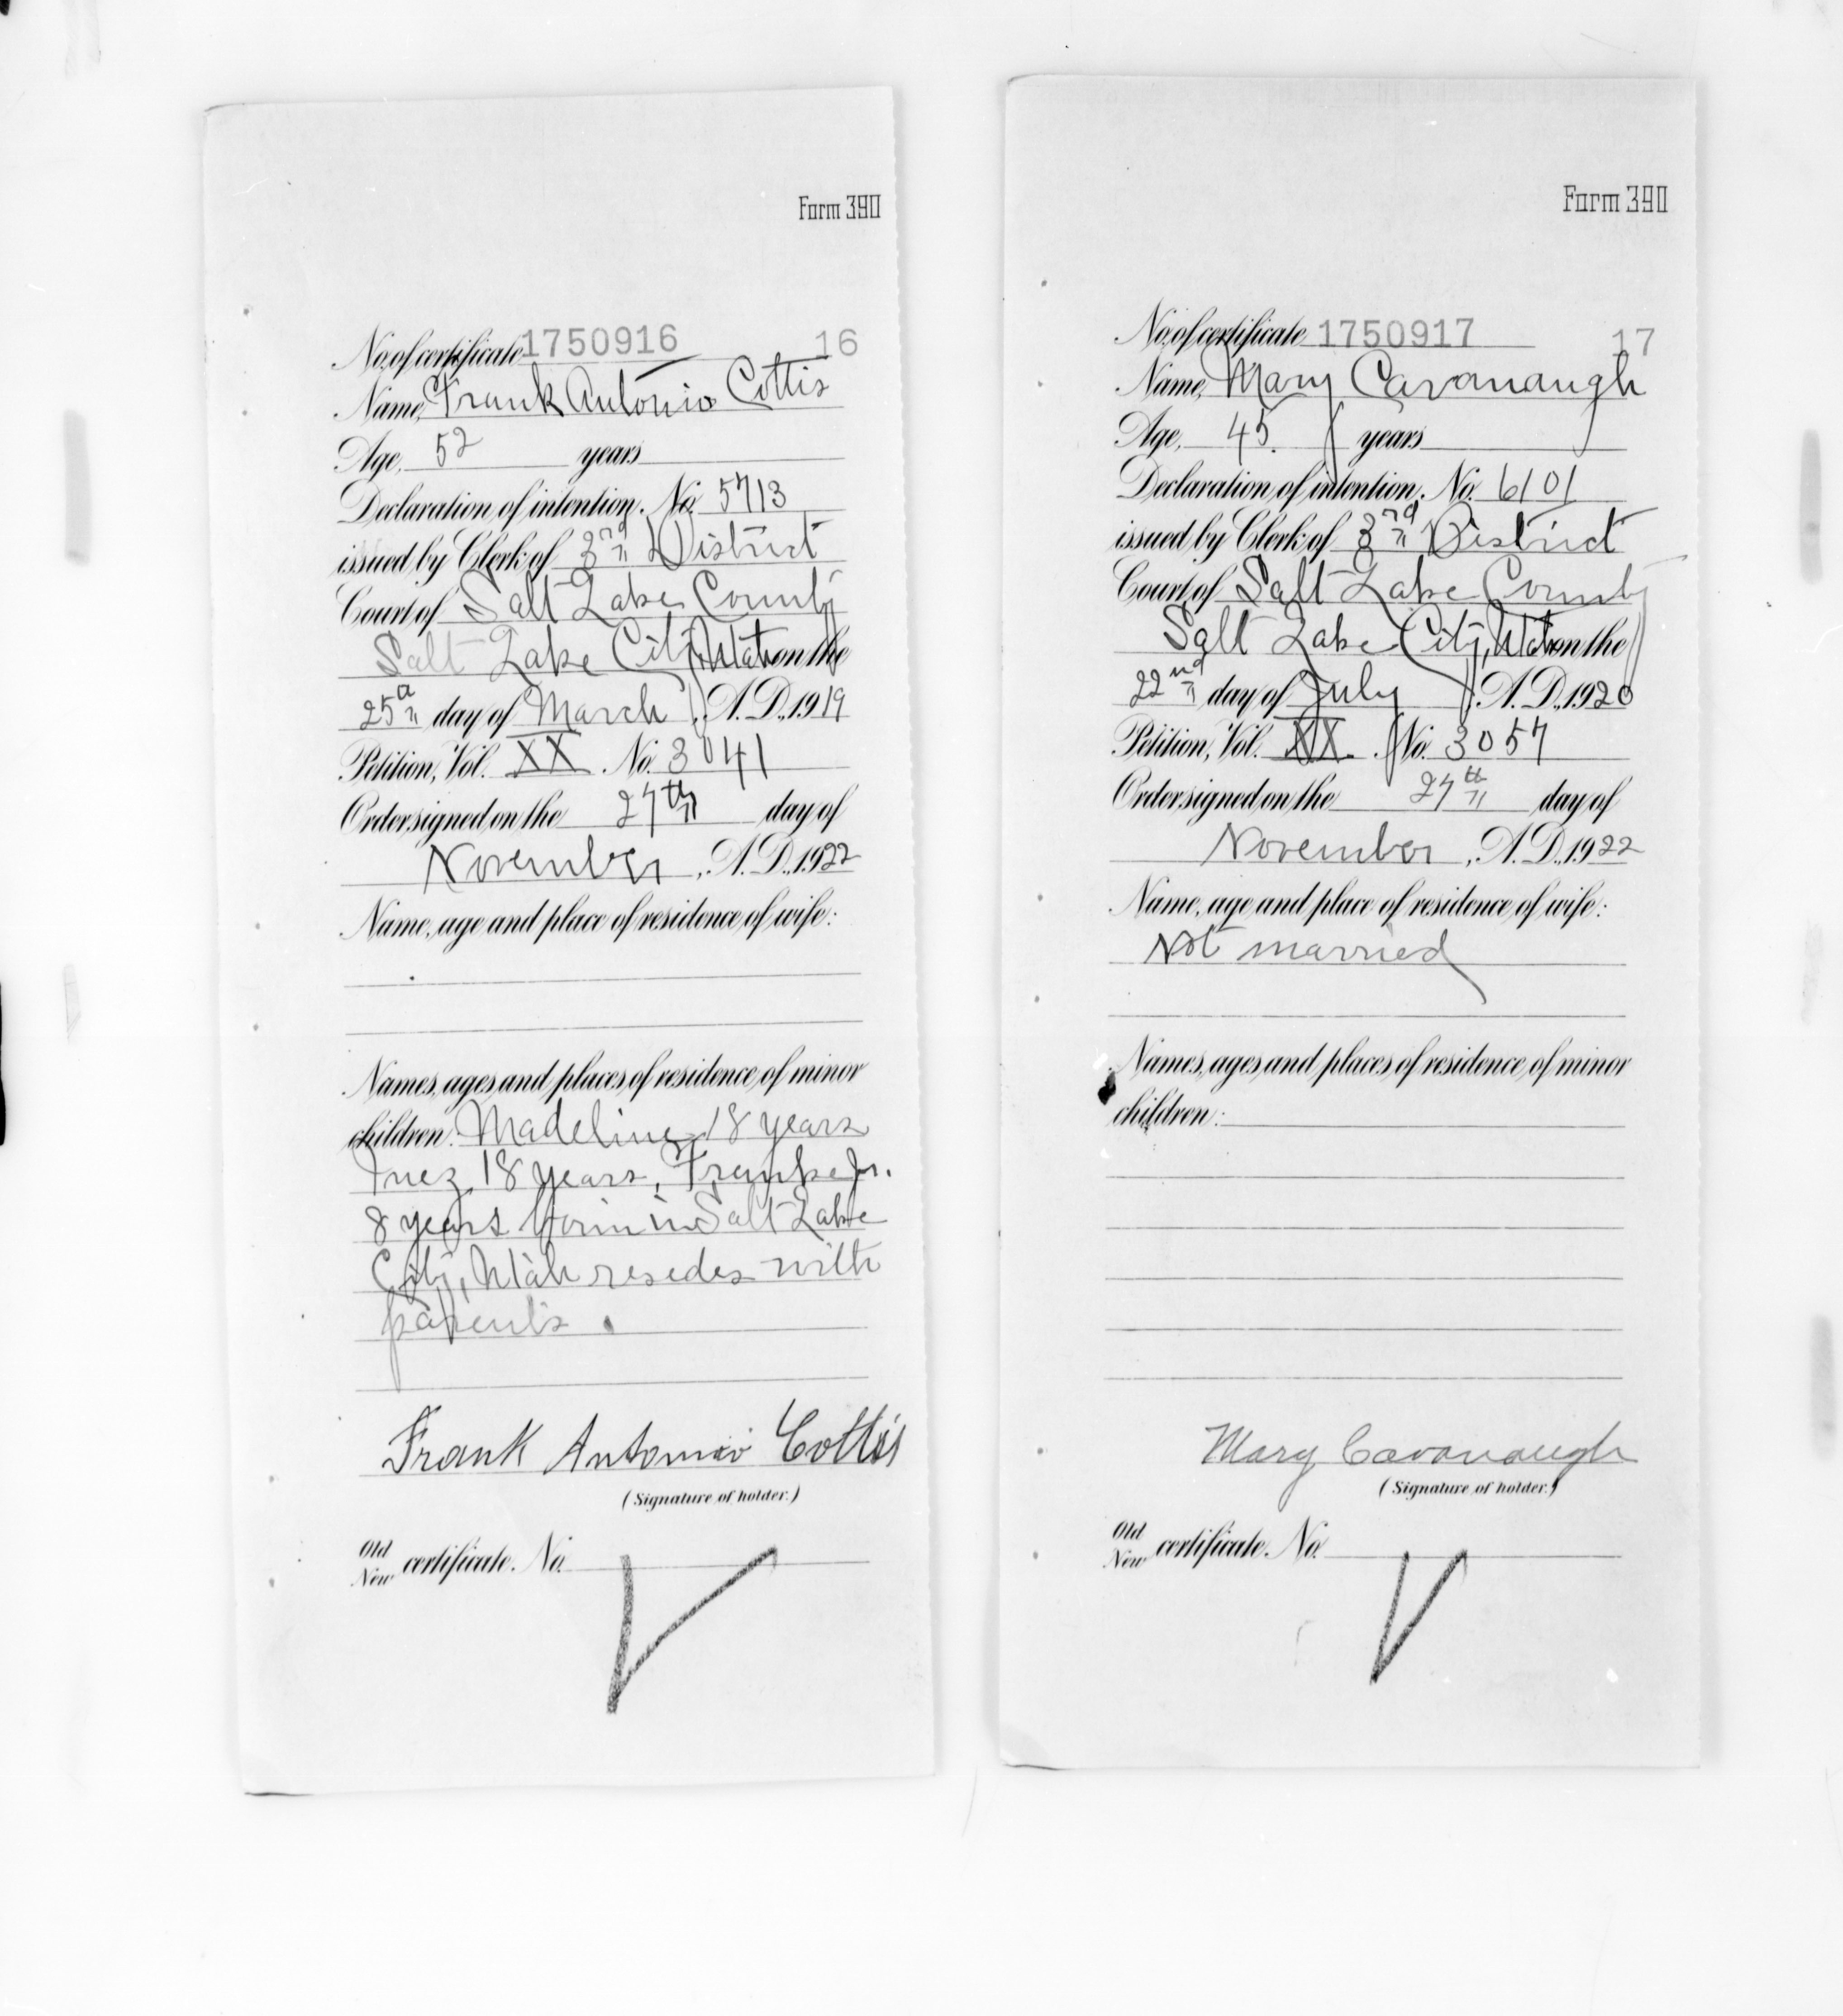 Form 390
No. of certificate 1750916 16
Name, Frank Antonio Cottis
Age, 52 years
Declaration of intention. No. 5713
issued by Clerk of 3rd District
Court of Salt Lake County
Salt Lake City, Utah on the
25th day of March, A.D., 1919
Petition, Vol. XX. No. 3041
Order signed on the 27th day of
November, A.D., 1922
Name, age and place of residence of wife:
Names, ages and places of residence of minor
children: Madeline 18 years
Inez 18 years, Frank Jr.
8 years born in Salt Lake
City, Utah resedes with
parents.
Frank Antonio Cottis
(Signature of holder.)
Old
New certificate. No.
Form 390
No. of certificate 1750917 17
Name, Mary Cavanaugh
Age, 45 years
Declaration of intention. No. 6101
issued by Clerk of 3rd District
Court of Salt Lake County
Salt Lake City, Utah on the
22nd day of July, A.D., 1920
Petition, Vol. XX. No. 3057
Order signed on the 27th day of
November, A.D., 1922
Name, age and place of residence of wife:
Not married
Names, ages and places of residence of minor
children:
Mary Cavanaugh
(Signature of holder.)
Old
New certificate. No.